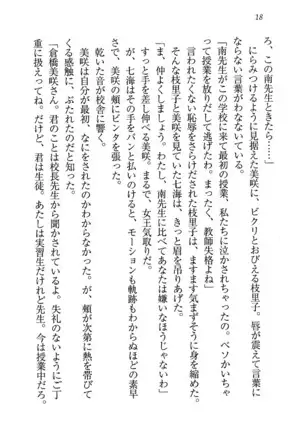 18
ろ、この南先生ときたら……」
にらみつけるように見据えた美咲に、ビクリとおびえる枝里子。唇が震えて言葉に
ならない言葉がわなないている。
「南先生がこの学校に来て最初の授業、私たちに泣かされちゃったの。ベソかいちゃ
って授業を放りだして逃げたわ。まったく、教師失格よね」
さらしたくない恥辱をさらけだされた枝里子は、ますます気まずそうに身を縮めた。
そんな枝里子と美咲を見比べている七海は、きっと眉を吊りあげた。
「ま、仲よくしましょ。南先生に比べてあなたは嫌いなほうじゃないわ」
すっと手を差し伸べる美咲。まるで、女王気取りだ。
が、七海はその手をバンと払いのけると、モーションも軌跡もわからぬほどの素早
さで、美咲の頬にビンタを張った。
乾いた音が校舎に響く。
美咲は自分が最初、なにをされたのかわからなかった。が、頬が次第に熱を帯びて
くる感触に、ぶたれたのだと知った。
「倉橋美咲さん。君のことは校長先生から聞かされているよ。失礼のないようにご丁
重に扱えってね。だけど、君は生徒。あたしは実習生だけれど先生。今は授業中だろ。